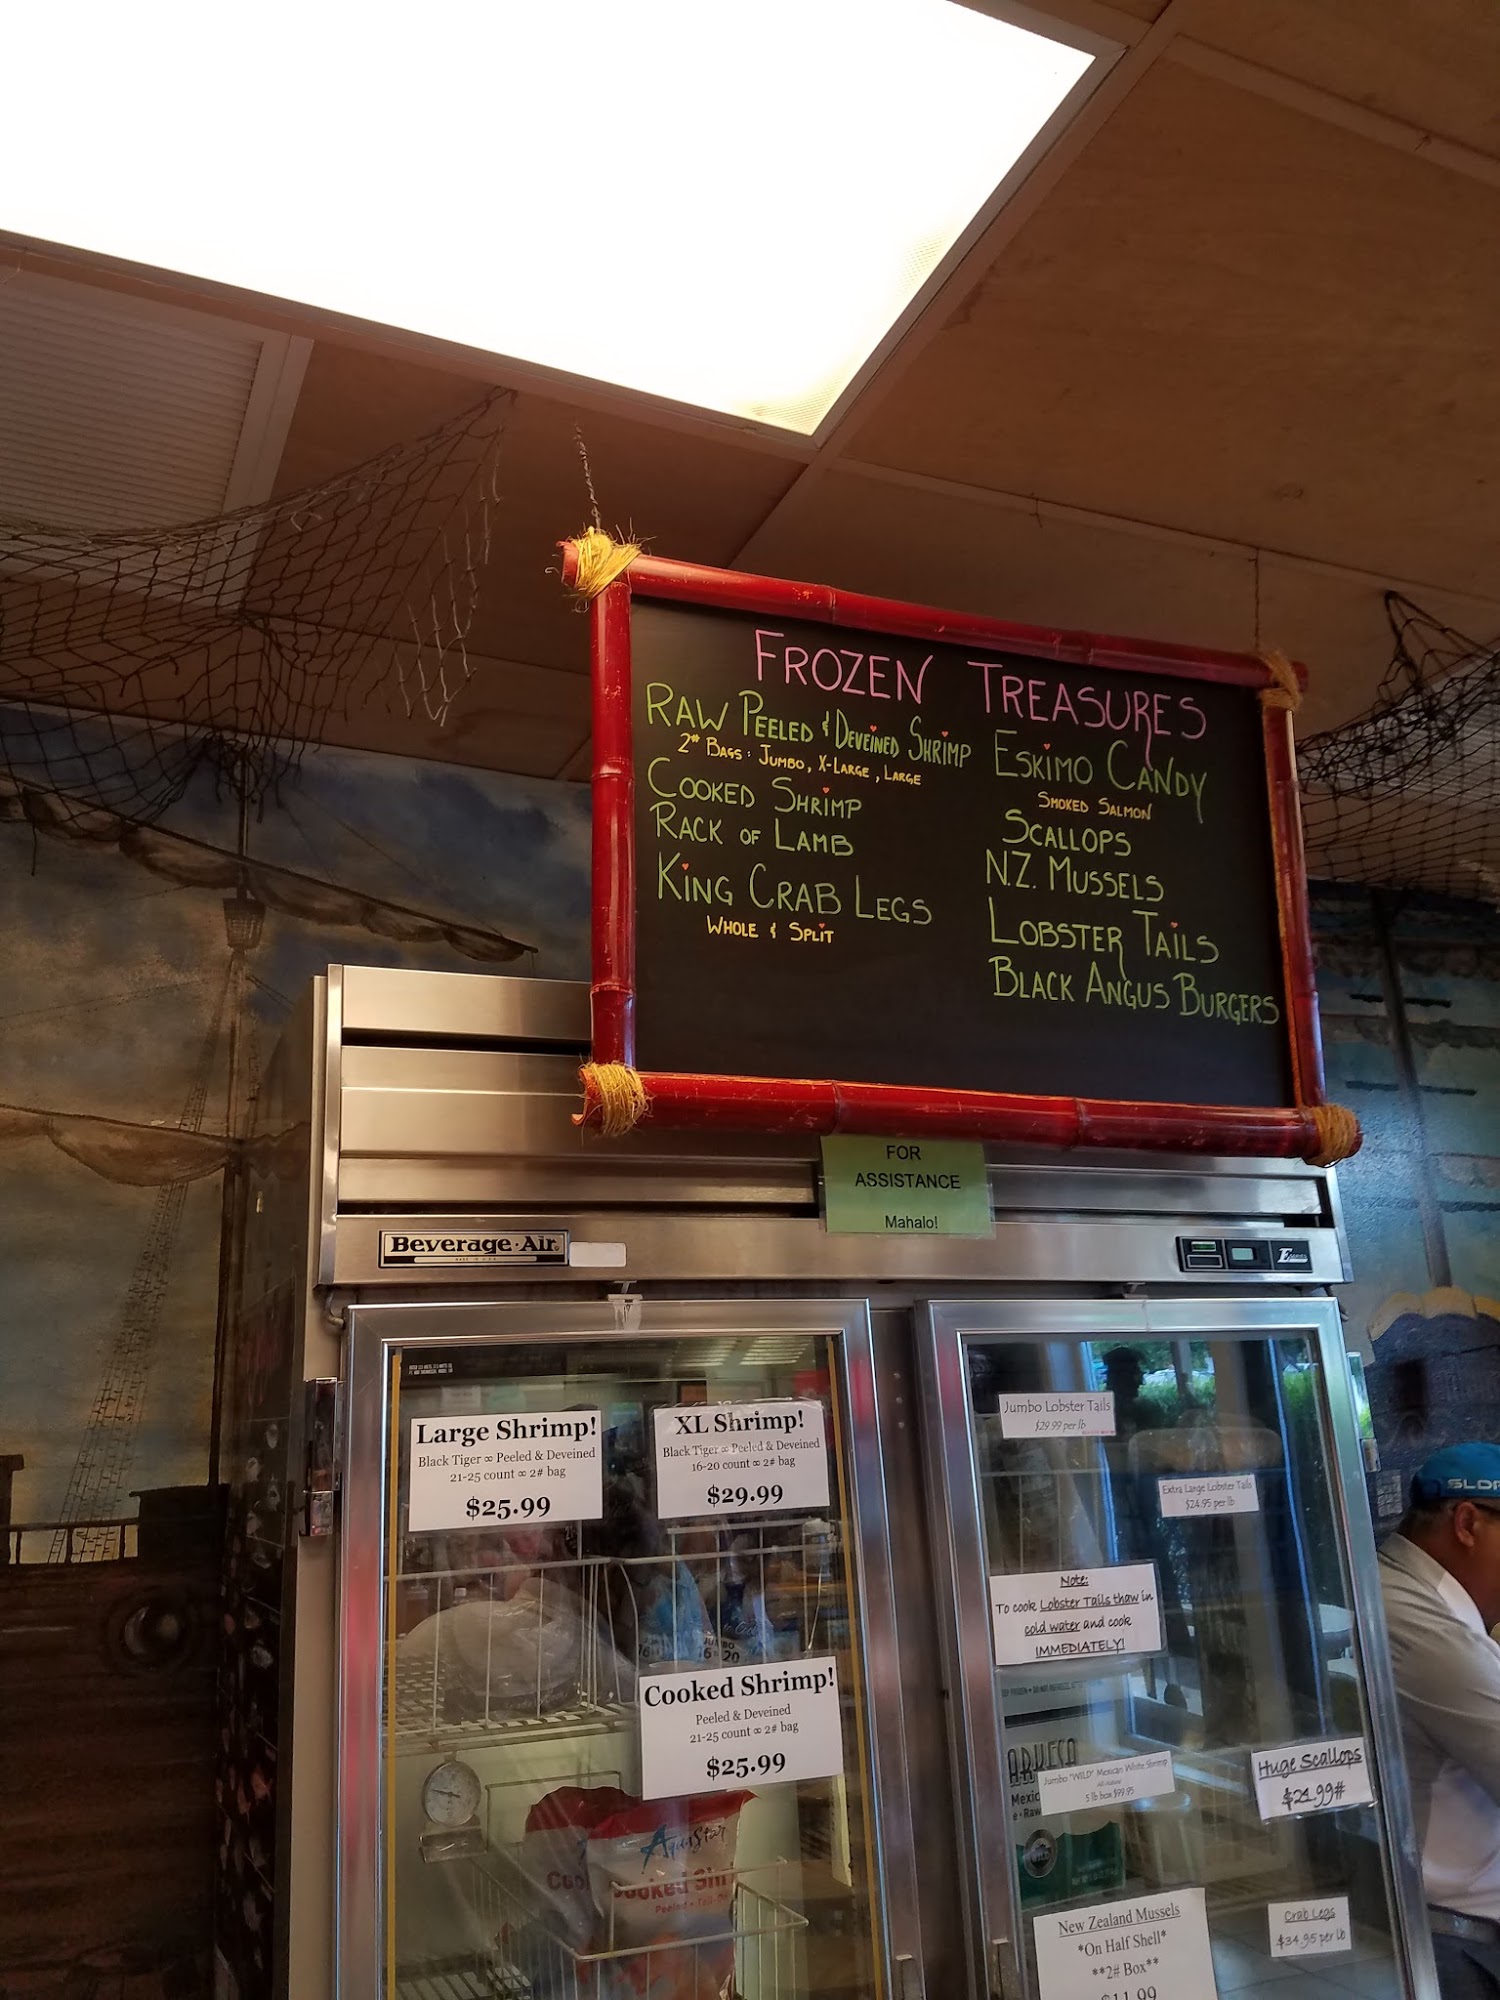 FROZEN TREASURES
RAW PEELED & DEVEINED SHRIMP
2# BAGS: JUMBO, X-LARGE, LARGE
COOKED SHRIMP
RACK OF LAMB
KING CRAB LEGS
WHOLE & SPLIT
ESKIMO CANDY
SMOKED SALMON
SCALLOPS
N.Z. MUSSELS
LOBSTER TAILS
BLACK ANGUS BURGERS
FOR
ASSISTANCE
Mahalo!
Beverage-Air
Large Shrimp!
Black Tiger ∞ Peeled & Deveined
21-25 count ∞ 2# bag
$25.99
XL Shrimp!
Black Tiger ∞ Peeled & Deveined
16-20 count ∞ 2# bag
$29.99
JUMBO
Cooked Shrimp!
Peeled & Deveined
21-25 count ∞ 2# bag
$25.99
AquaStar
Jumbo Lobster Tails
$29.99 per lb
Extra Large Lobster Tails
$24.95 per lb
Note:
To cook Lobster Tails thaw in
cold water and cook
IMMEDIATELY!
Jumbo "WILD" Mexican White Shrimp
5 lb box $99.95
Huge Scallops
$21.99#
New Zealand Mussels
*On Half Shell*
**2# Box**
$11.99
Crab Legs
$34.95 per lb